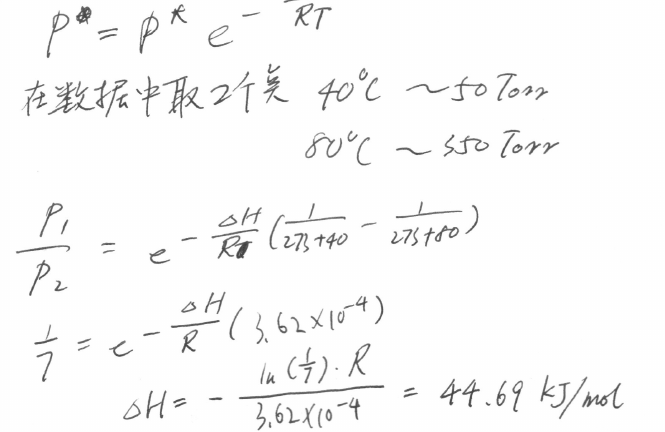 P = P* e^- /RT
在数据中取2个点 40°C ~50 Torr
80°C ~350 Torr
P₁/P₂ = e^-ΔH/R (1/273+40 - 1/273+80)
1/7 = e^-ΔH/R (3.62×10⁻⁴)
ΔH = - ln(1/7)·R / 3.62×10⁻⁴ = 44.69 kJ/mol